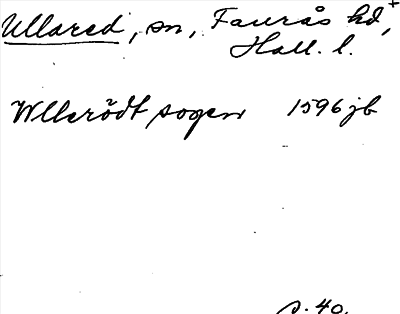 Ullared, sn, Faurås hd,+
Hall. l.
Wllerödt sogen 1596 jb
s. 40.